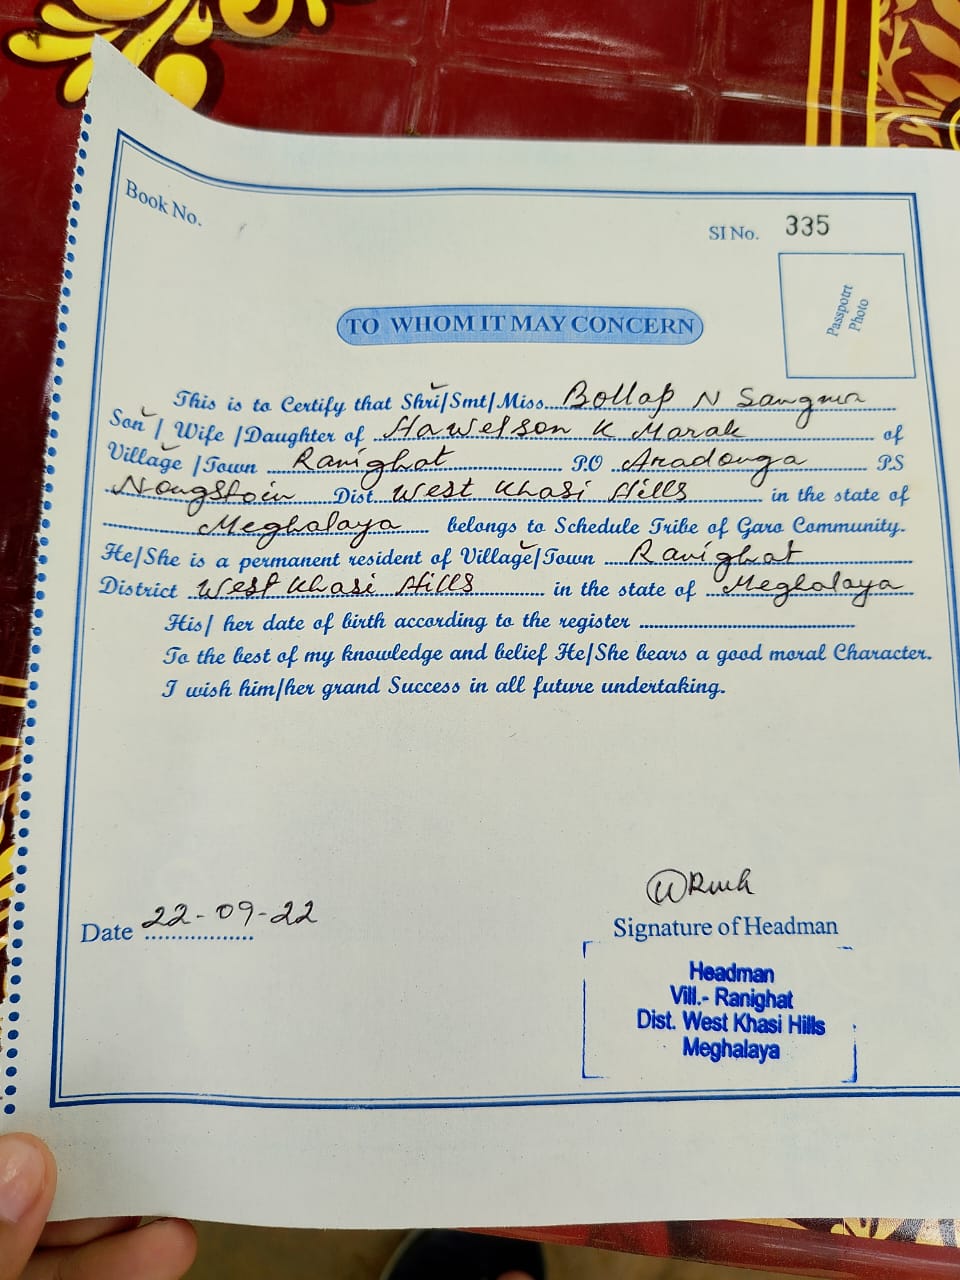 Book No.
SI No. 335
Passpotrt
Photo
TO WHOM IT MAY CONCERN
This is to Certify that Shri/Smt/Miss Bollap N Sangma
Son / Wife /Daughter of Hawelson K Marak of
Village /Town Ranighat P.O Aradonga P.S
Nongstoin Dist. West Khasi Hills in the state of
Meghalaya belongs to Schedule Tribe of Garo Community.
He/She is a permanent resident of Village/Town Ranighat
District West Khasi Hills in the state of Meghalaya
His/ her date of birth according to the register
To the best of my knowledge and belief He/She bears a good moral Character.
I wish him/her grand Success in all future undertaking.
Date 22-09-22
Signature of Headman
Headman
Vill.- Ranighat
Dist. West Khasi Hills
Meghalaya